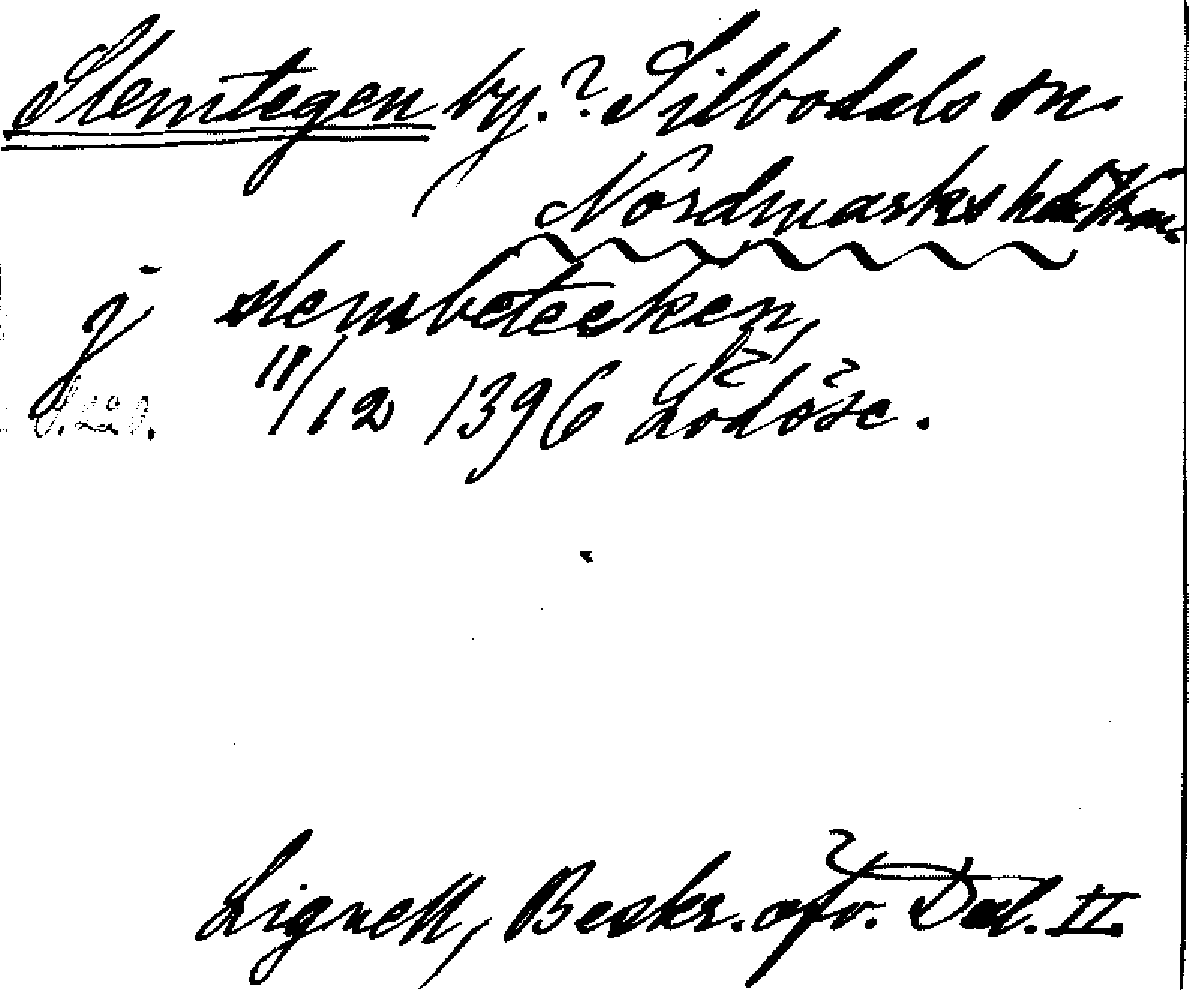 Slemtegen by.? Silbodals sn.
Nordmarks hd Vrm.
j slembeteeken,
S. 220. 11/12 1396 Lödöse.
Lignell, Beskr. öfv. Dal. II.